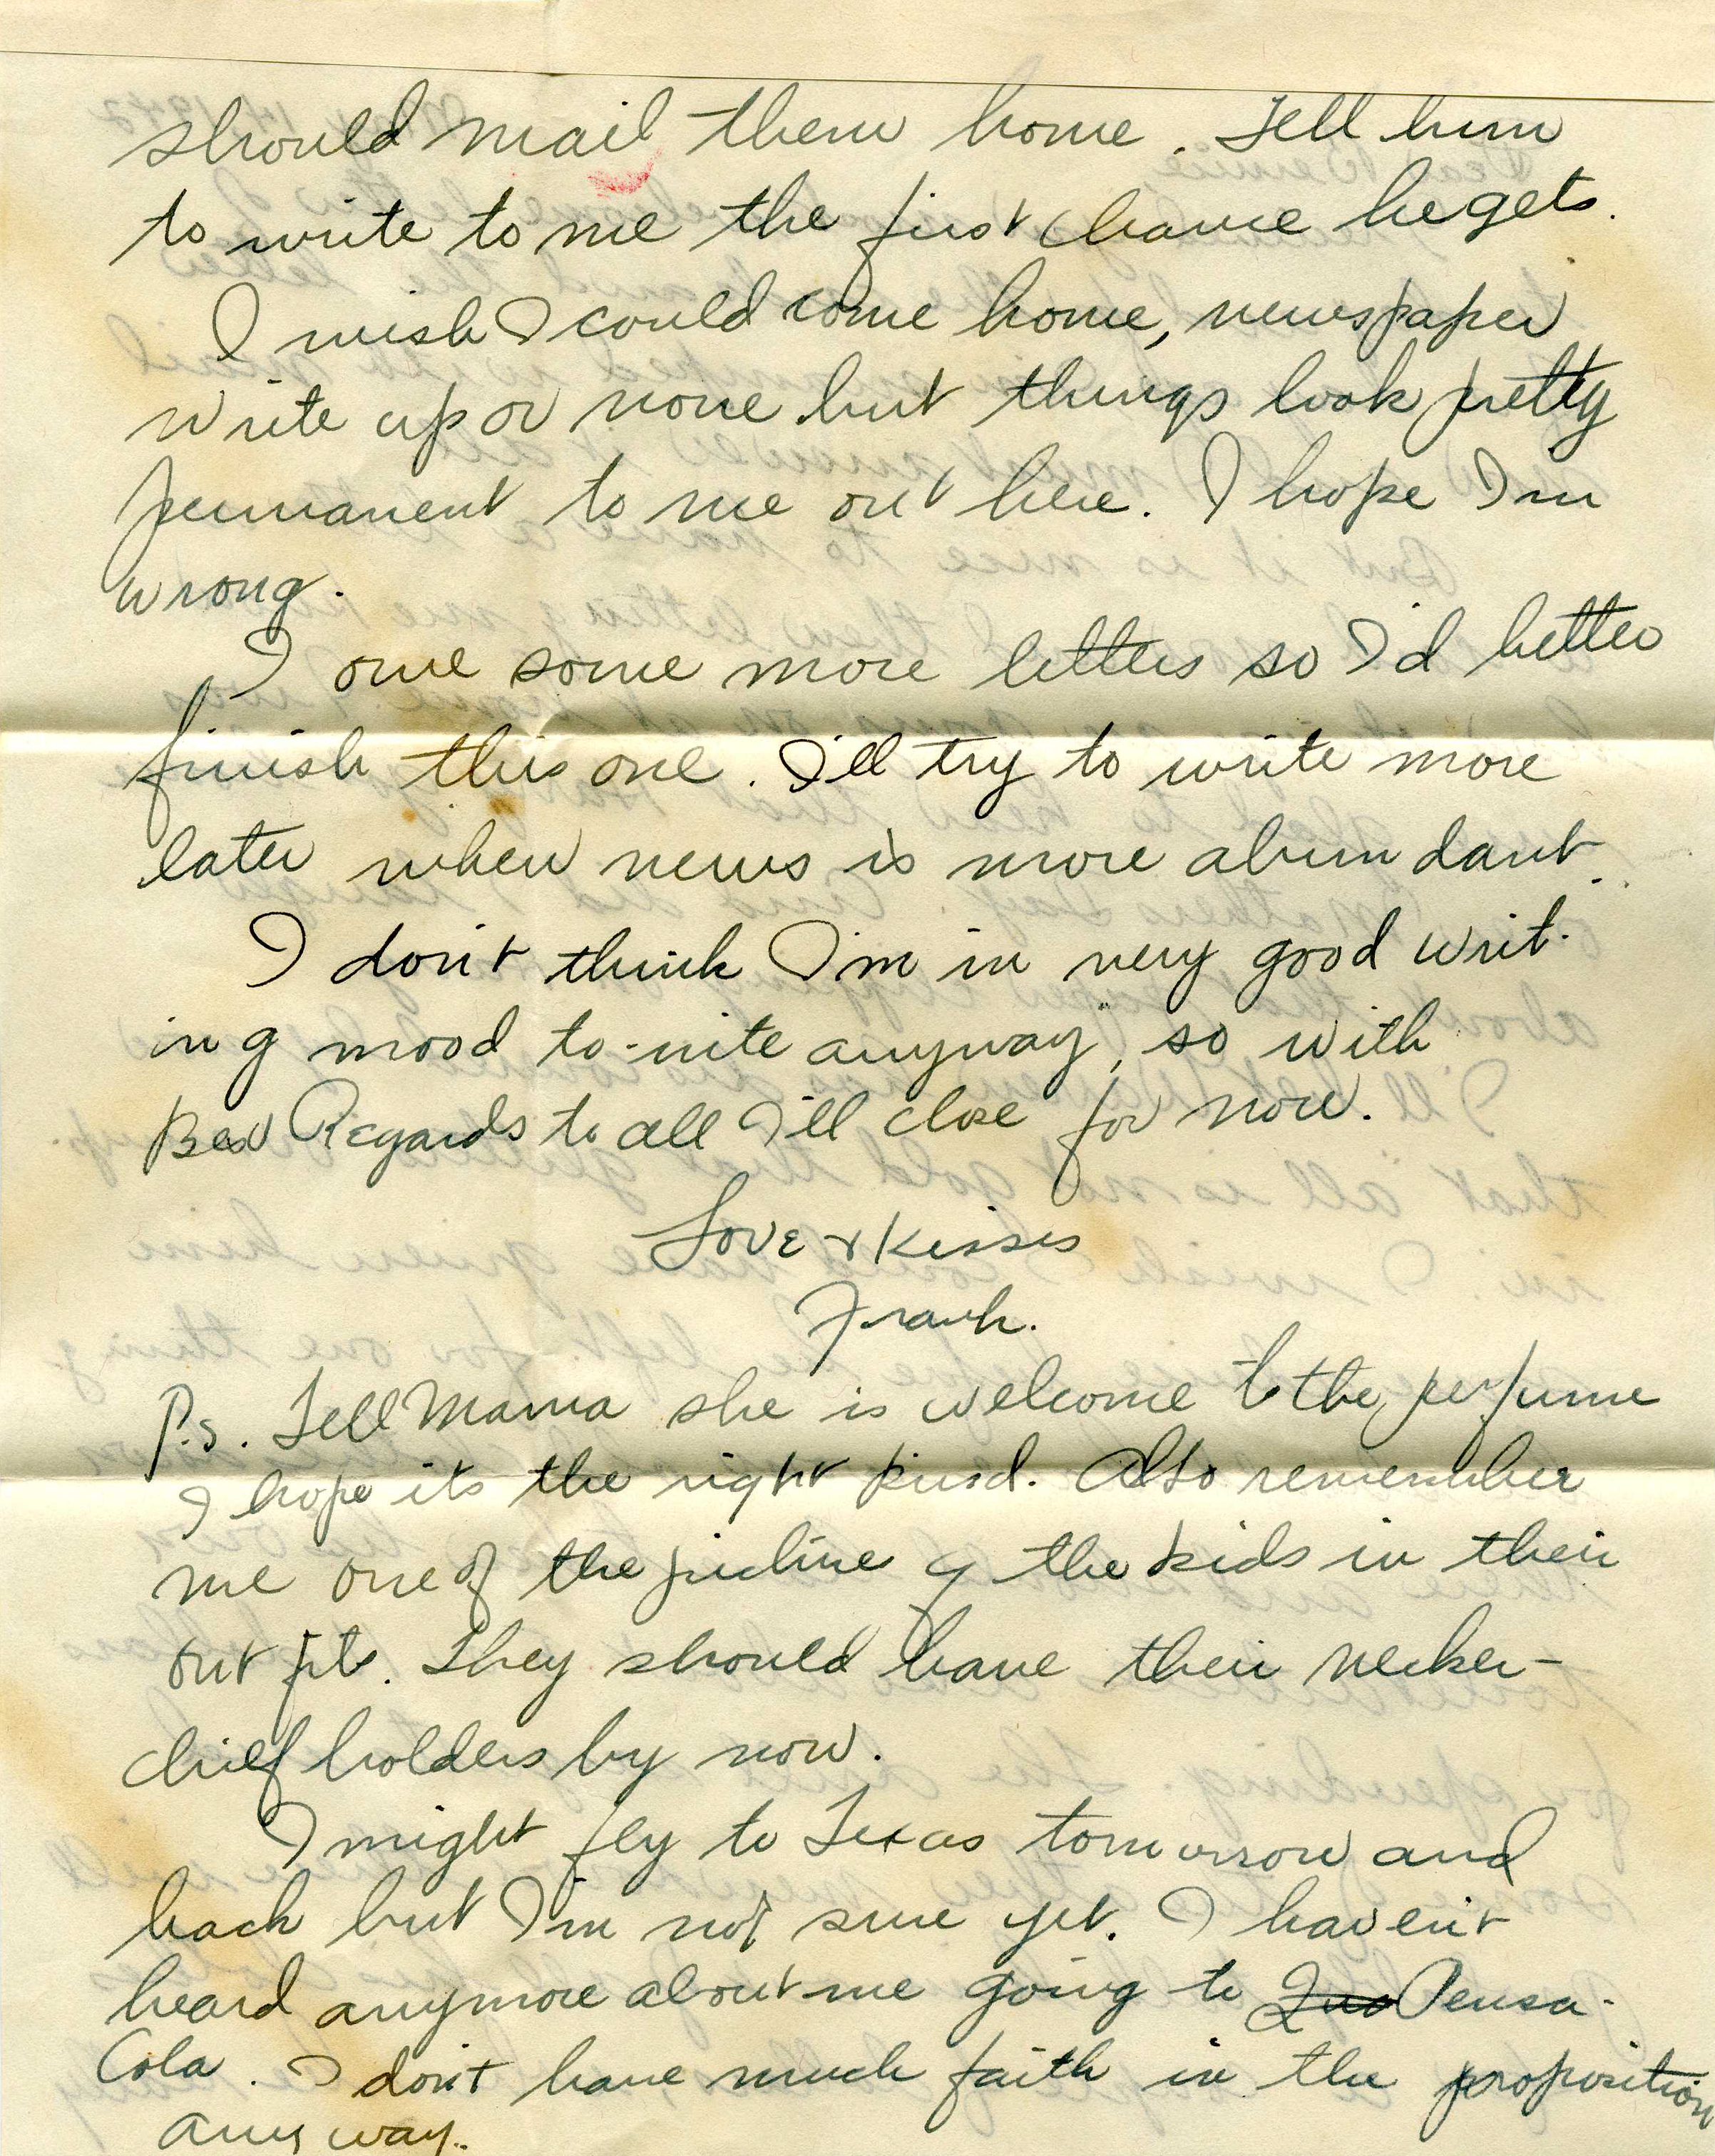 should mail them home. Tell him
to write to me the first chance he gets.
I wish I could come home, newspaper
write up or none but things look pretty
permanent to me out here. I hope Im
wrong.
I owe some more letters so I'd better
finish this one. I'll try to write more
later when news is more abundant.
I don't think I'm in very good writ-
ing mood to-nite anyway, so with
Best Regards to all I'll close for now.
Love & Kisses
Frank.
P.S. Tell Mama she is welcome to the perfume
I hope its the right kind. Also remember
me one of the picture of the kids in their
out fits. They should have their necker-
chief holders by now.
I might fly to Texas tomorrow and
back but I'm not sure yet. I haven't
heard anymore about me going to Pensa-
Cola. I don't have much faith in the proposition
anyway.